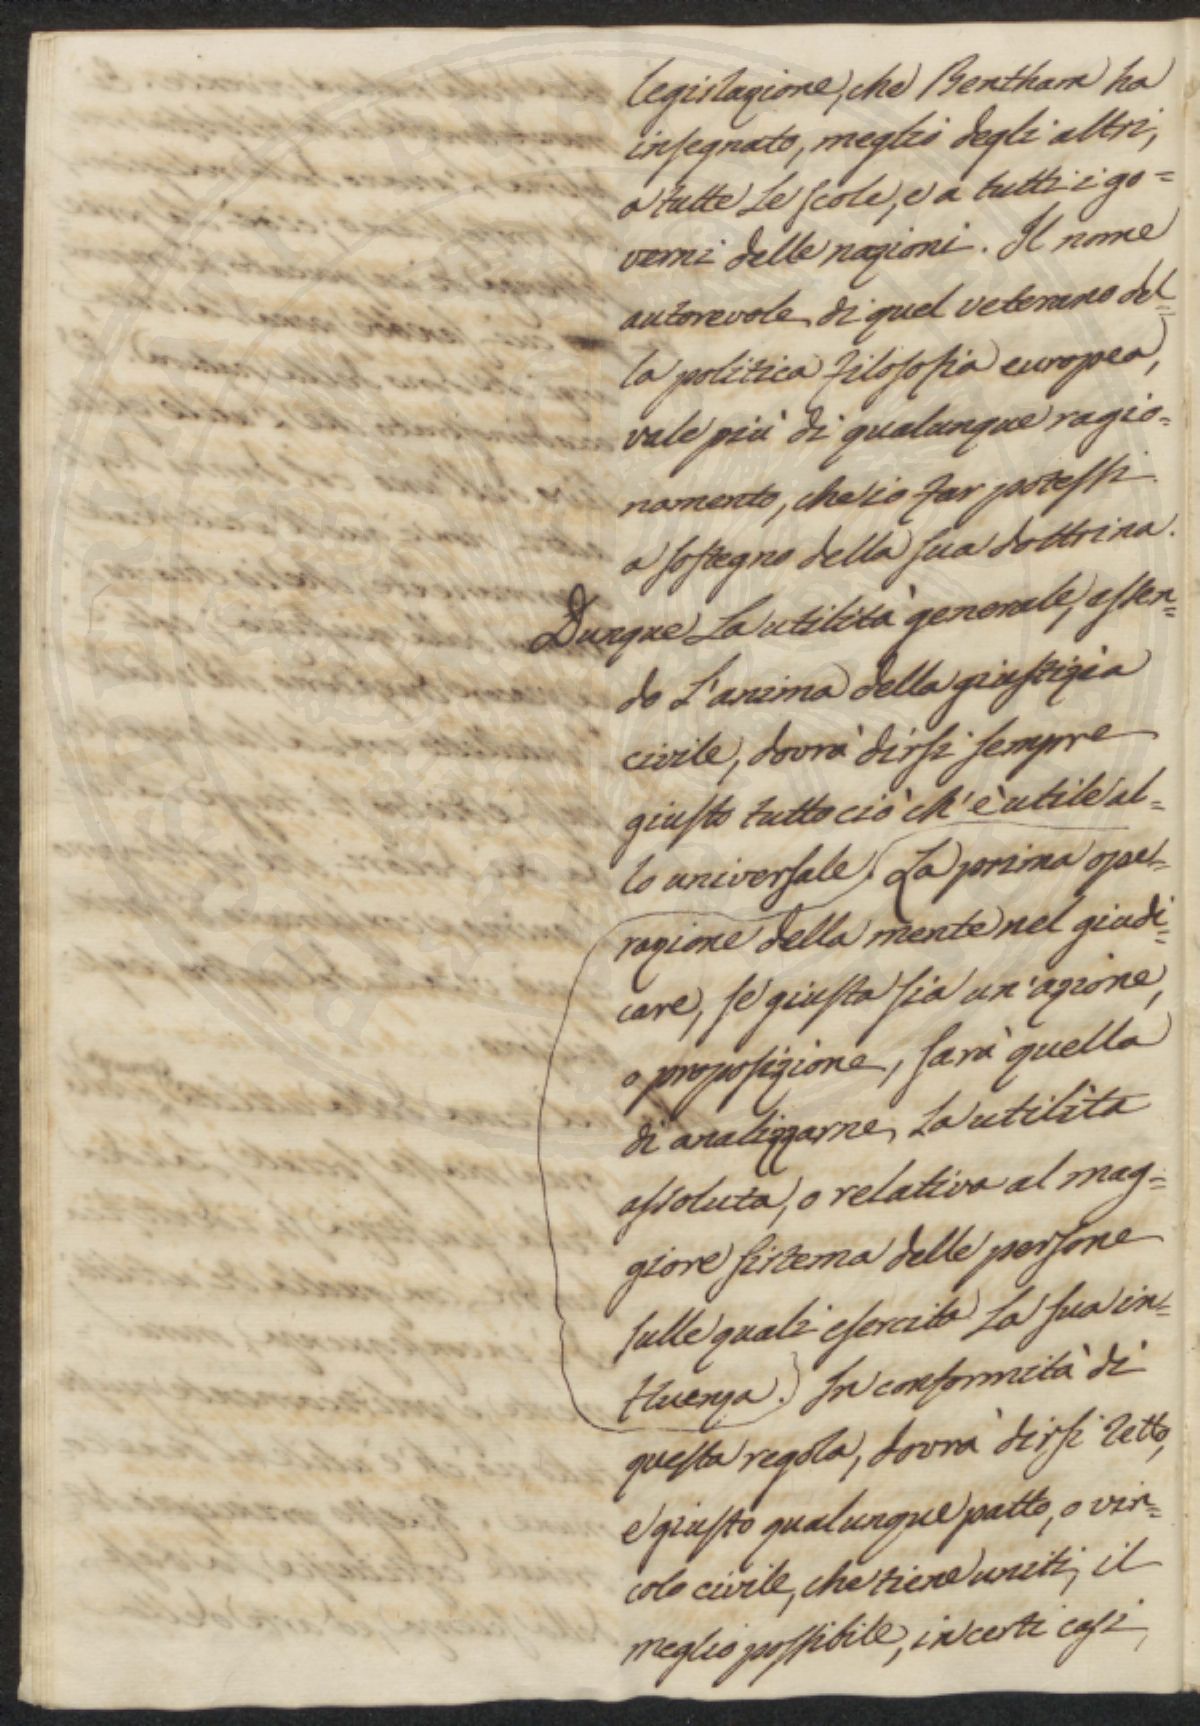 legislazione, che Bentham ha
insegnato, meglio degli altri,
a tutte le scole, e a tutti i go=
verni delle nazioni. Il nome
autorevole di quel veterano del=
la politica filosofia europea,
vale più di qualunque ragio=
namento, che io far potessi
a sostegno della sua dottrina.
Dunque la utilità generale, essen=
do l'anima della giustizia
civile, dovrà dirsi sempre
giusto tutto ciò ch'è utile al=
lo universale. La prima ope=
razione della mente nel giudi=
care, se giusta sia un'azione,
o proposizione, sarà quella
di analizzarne la utilità
assoluta, o relativa al mag=
giore sistema delle persone
sulle quali esercita la sua in=
fluenza. In conformità di
questa regola, dovrà dirsi retto,
e giusto qualunque patto, o vin=
colo civile, che tiene uniti, il
meglio possibile, in certi casi